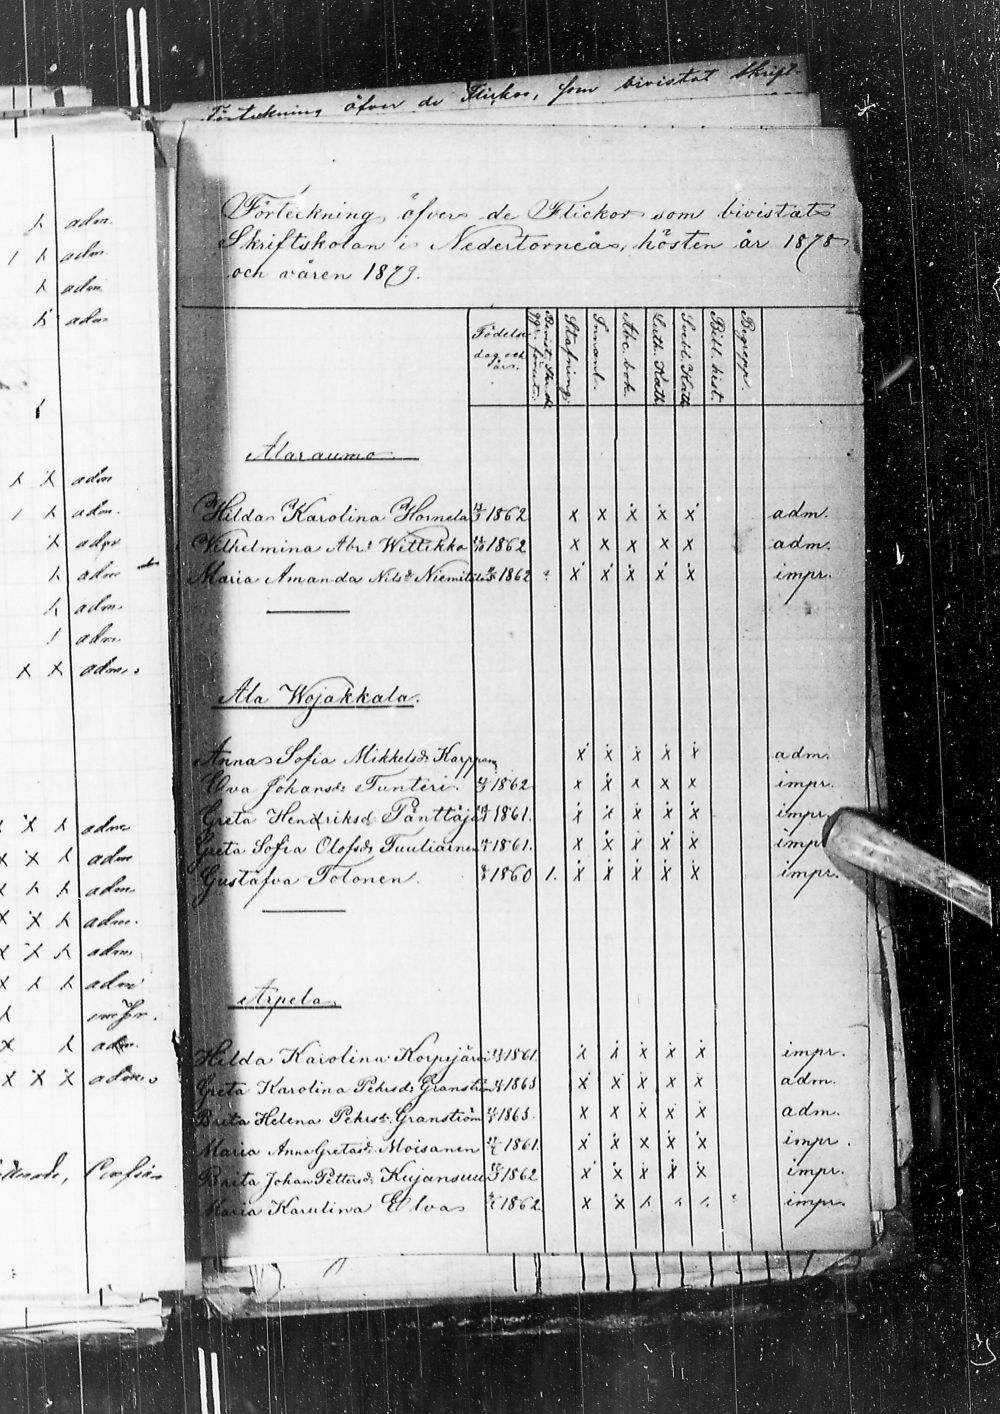 Förteckning öfver de Flickor, som bivistat Skrift-
Förteckning öfver de Flickor som bivistat
Skriftskolan i Nedertorneå, hösten år 1878
och våren 1879.
Födelse dag och år.
Stafning
Innanl.
Abc. bok.
Luth. Kath.
Svebl. Kath.
Bibl. hist.
Begrepp.
Alaraumo
Hilda Karolina Hornela 1862 x x x x x adm.
Vilhelmina Abr:s Wittikko 1862 x x x x x adm.
Maria Amanda Nils:d 1862 x x x x x impr.
Ala Wojakkala.
Anna Sofia Mikkelsd. x x x x x adm.
Elva Johansd. Tunteri. 1862 x x x x x impr.
Greta Hendriksd. Pänttäjä 1861. x x x x x impr.
Greta Sofia Olofsd. 1861. x x x x x impr.
Gustafva Tolonen. 1860 1. x x x x x impr.
Arpela
Hilda Karolina Korpijärvi 1861. x x x x x impr.
Greta Karolina Pehrsd. Granström 1863 x x x x x adm.
Brita Helena Pehrsd. Granström 1863. x x x x x adm.
Maria Anna Gretasd. Moisanen 1861. x x x x x impr.
Brita Johan Pettersd. Kujansuu 1862 x x x x x impr.
Maria Karolina Elvas 1862 x x x x x impr.
x adm.
x adm.
x adm.
x adm
x x adm
x adm.
x adm
x adm
x adm.
adm
x x adm.
x x adm
x x x adm
x x x adm
x x x adm.
x x x adm
x x x adm
impr.
x x adm.
x x x adm.